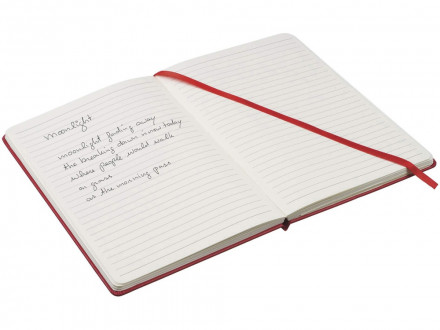 Moonlight
moonlight fading away
the breaking dawn is new today
where people would walk
on grass
as the morning pass